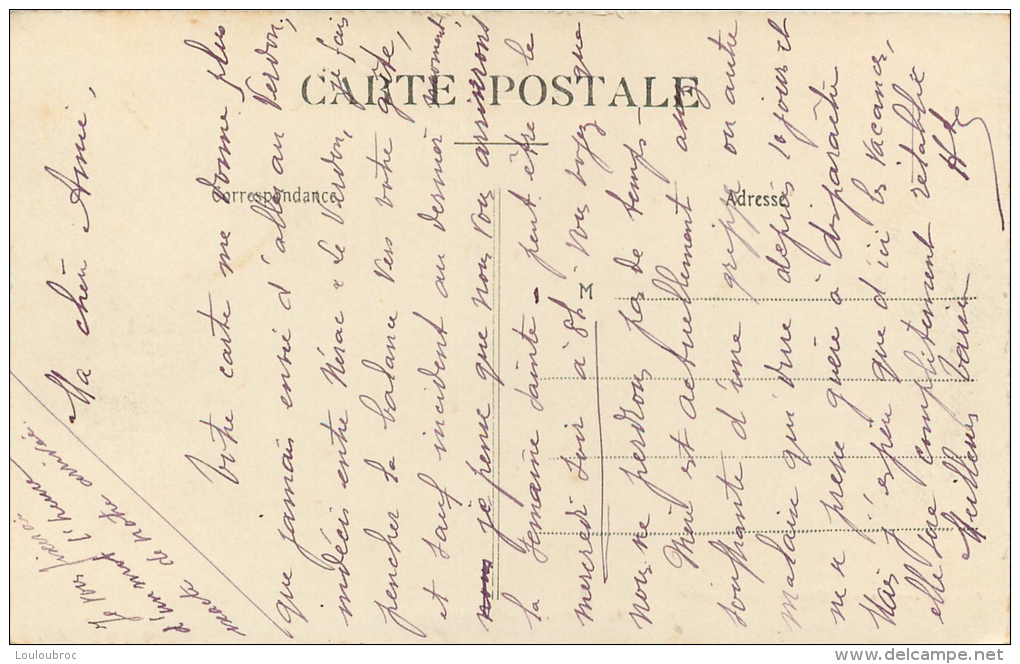 CARTE POSTALE
Correspondance
Adresse
M
Ma chère Amie,
Votre carte me donne plus
que jamais envie d'aller au Verdon,
indécis entre Nérac & le Verdon, je fais
pencher la balance vers votre gîte,
et sauf incident au dernier moment
je pense que nous vous arriverons
la semaine sainte - peut être le
mercredi soir à 8h. Vous voyez que
nous ne perdrons pas de temps -
Mené est actuellement assez
souffrante d'une grippe ou autre
malaise qui dure depuis 10 jours et
ne se presse guère à disparaître
Mais j'espère que d'ici les vacances,
elle sera complètement rétablie
Meilleurs baisers
Je vous fixerai
d'un mot l'heure
exacte de notre arrivée.
Louloubroc
delcampe.net